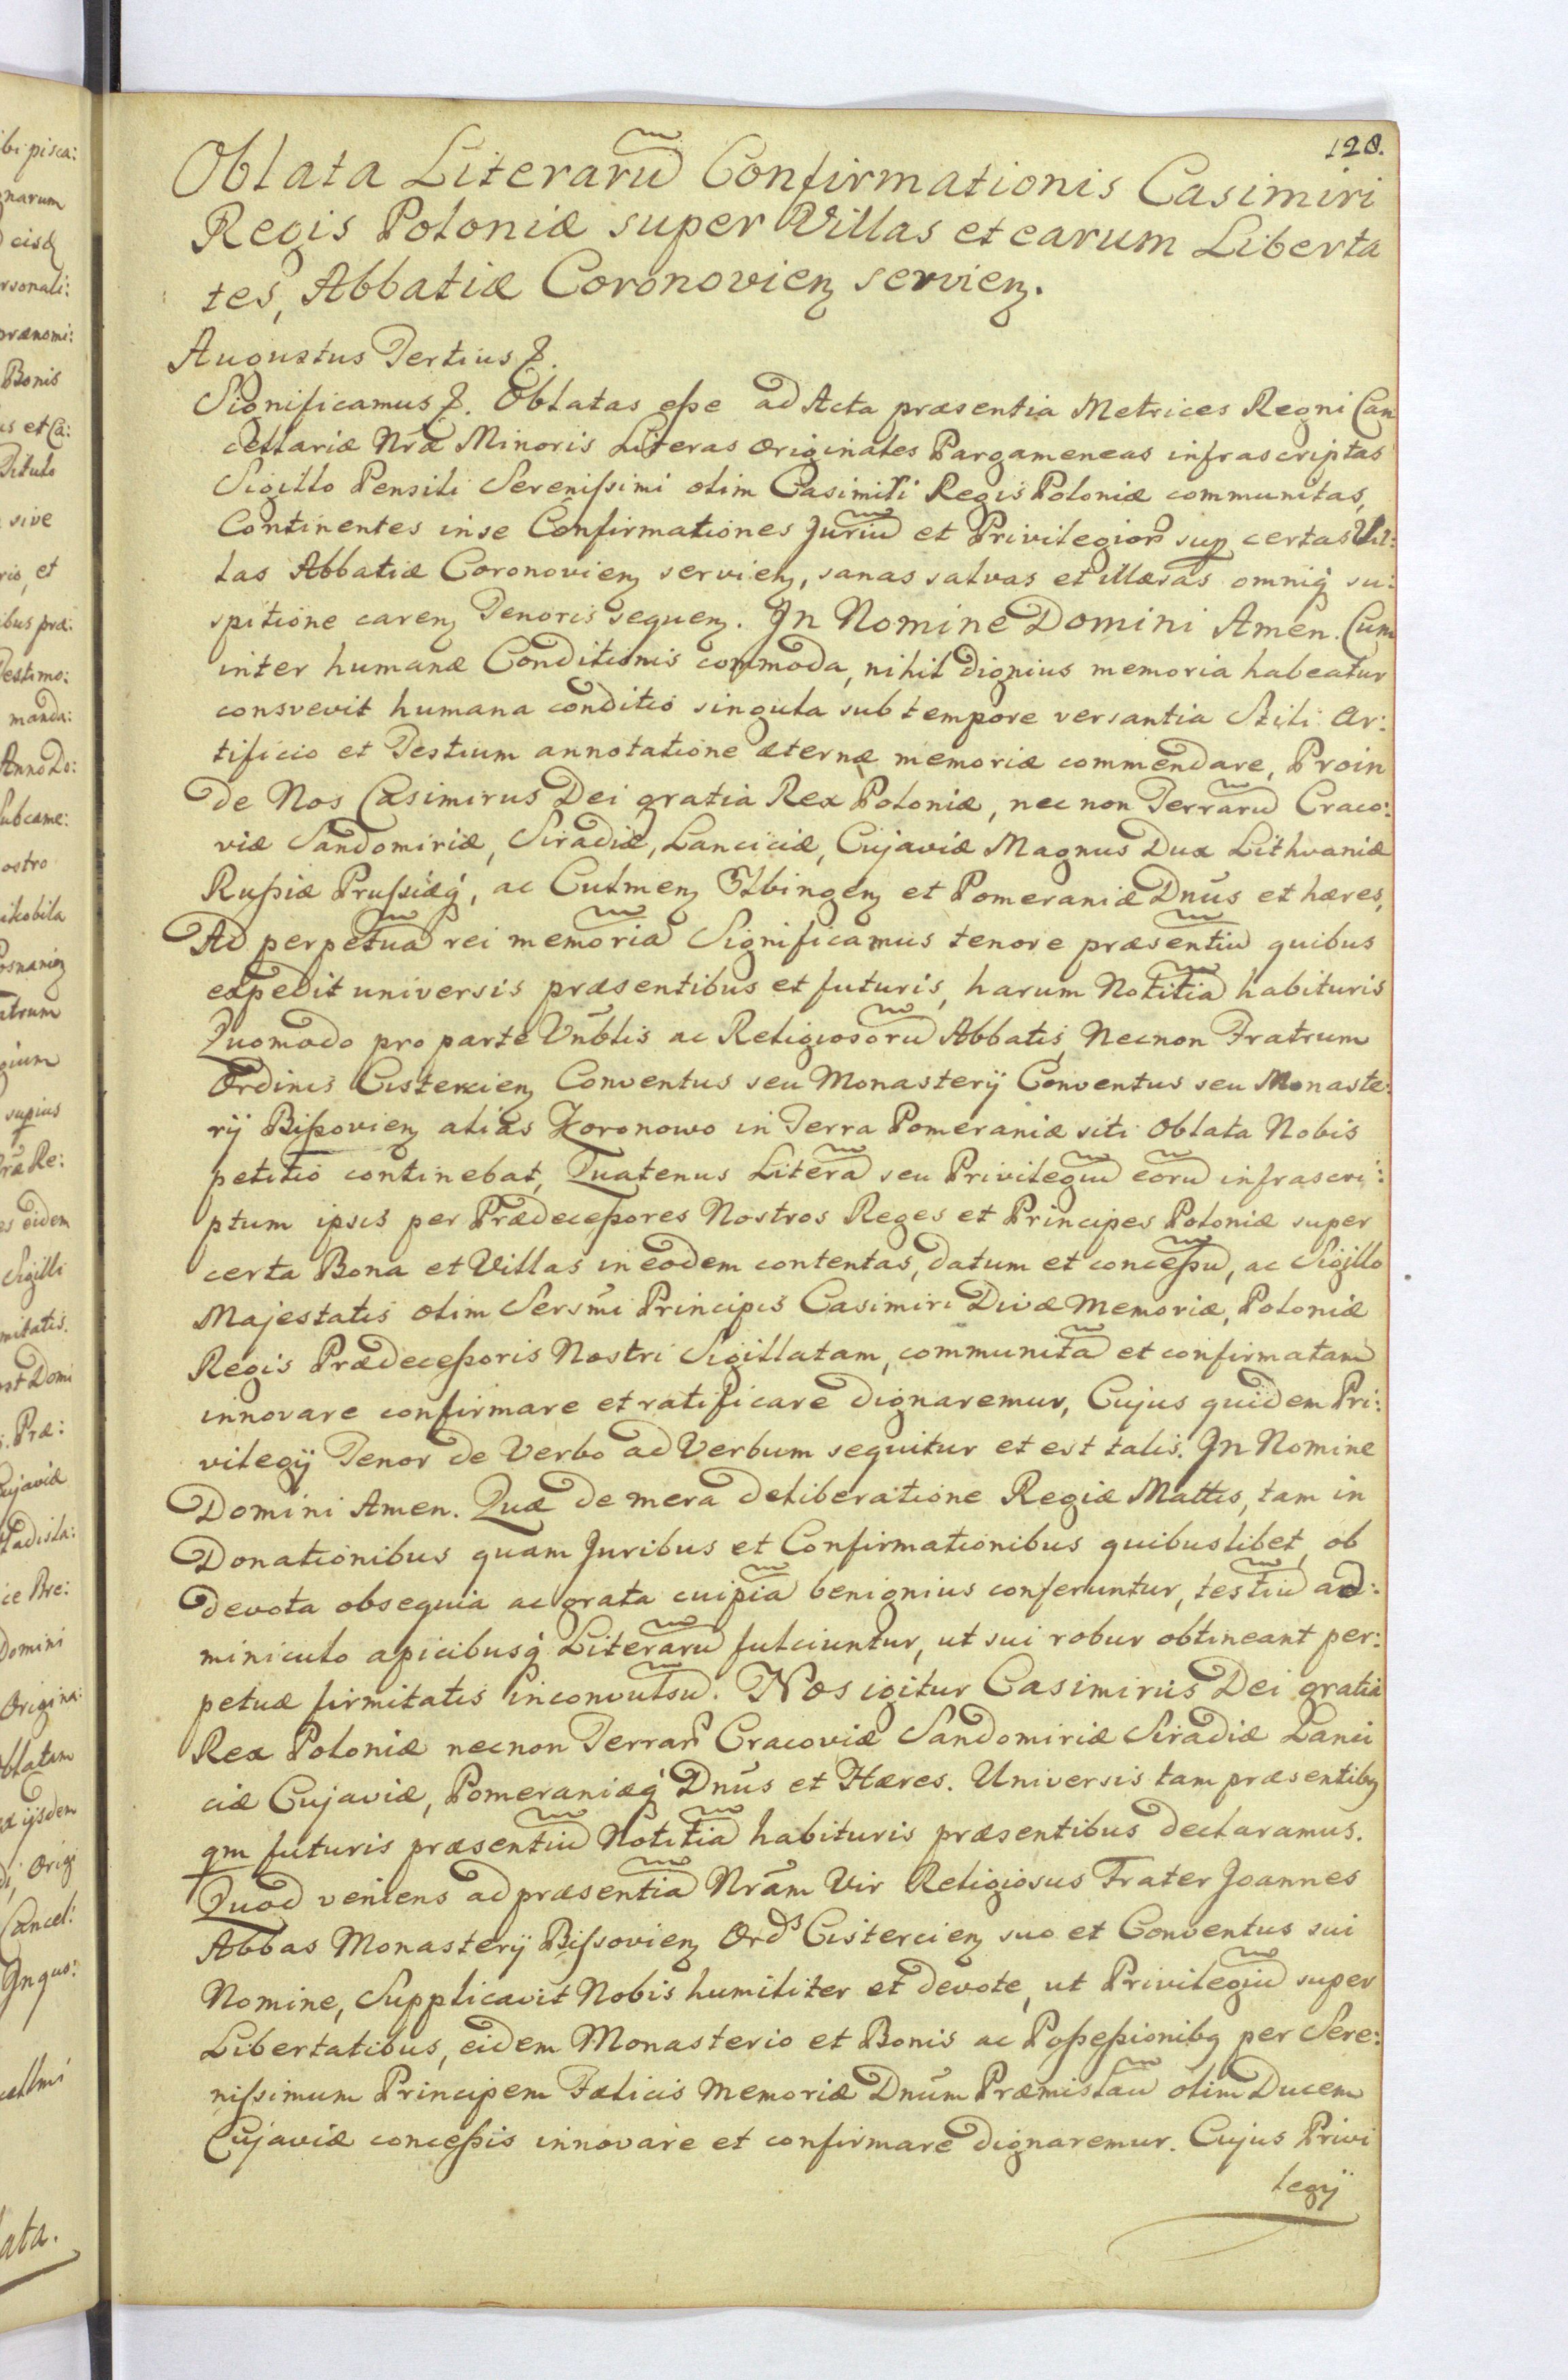 128.
Oblata Literarū Confirmationis Casimiri
Regis Poloniæ super Villas et earum Liberta
tes, Abbatiæ Coronovienꝫ servienꝫ.
Augustus Tertius &.
Significamus &. Oblatas eſse ad Acta præsentia Metrices Regni Can
cellariæ Nræ Minoris Literas Originales Pargameneas infrascriptas
Sigillo Pensili Sereniſsimi olim Casimiri Regis Poloniæ communitas,
Continentes in se Confirmationes Juriū et Privilegior̄ sup certas Vil:
las Abbatiæ Coronovienꝫ servienꝫ, sanas salvas et illæsas omniq́ su:
spitione carenꝫ Tenoris sequenꝫ. Jn Nomine Domini Amen. Cum
inter humanæ Conditionis commoda, nihil dignius memoria habeatur
consvevit humana conditio singula sub tempore versantia Stili Ar:
tificio et Testium annotatione æternæ memoriæ commendare, Proin
de Nos Casimirus Dei gratia Rex Poloniæ, nec non Terrarū Craco:
viæ Sandomiriæ, Siradiæ, Lanciciæ, Cujaviæ Magnus Dux Lithvaniæ
Ruſsiæ Pruſsiæq́, ac Culmenꝫ Elbingenꝫ et Pomeraniæ Dnūs et hæres,
Ad perpetuā rei memoriā Significamus tenore præsentiū quibus
expedit universis præsentibus et futuris, harum Notitiā habituris
Quomodo pro parte Vnblis ac Religiosorū Abbatis, Necnon Fratrum
Ordinis Cistercienꝫ Conventus seu Monasterÿ Conventus seu Monaste:
rÿ Biſsovienꝫ alias Koronowo in Terra Pomeraniæ siti Oblata Nobis
petitio continebat, Quatenus Literā seu Privilegiū eorū infrascri:
ptum ipsis per Prædeceſsores Nostros Reges et Principes Poloniæ super
certa Bona et Villas in eodem contentas, datum et conceſsū, ac Sigillo
Majestatis olim Sersm̄i Principis Casimiri Divæ Memoriæ, Poloniæ
Regis Prædeceſsoris Nostri Sigillatam, communitā et confirmatam
innovare confirmare et ratificare dignaremur, Cujus quidem Pri:
vilegÿ Tenor de Verbo ad Verbum sequitur et est talis. Jn Nomine
Domini Amen. Quæ de mera deliberatione Regiæ Mattis, tam in
Donationibus quam Juribus et Confirmationibus quibuslibet, ob
devota obsequia ac grata cuipiā benignius conferuntur, testiū ad:
miniculo apicibusq́ Literarū fulciuntur, ut sui robur obtineant per:
petuæ firmitatis inconvulsū. Nos igitur Casimirus Dei gratia
Rex Poloniæ necnon Terrar̄ Cracoviæ Sandomiriæ Siradiæ Lanci
ciæ Cujaviæ, Pomeraniæq́ Dnūs et Hæres. Universis tam præsentibꝫ
qm futuris præsentiū Notitiā habituris præsentibus declaramus.
Quod veniens ad præsentiā Nrām Vir Religiosus Frater Joannes
Abbas Monasterÿ Biſsovienꝫ Ordˢ Cistercienꝫ suo et Conventus sui
Nomine, Supplicavit Nobis humiliter et devote, ut Privilegiū super
Libertatibus, eidem Monasterio et Bonis ac Poſseſsionibꝫ per Sere:
niſsimum Principem Fælicis Memoriæ Dnūm Præmislaū olim Ducem
Cujaviæ conceſsis innovare et confirmare dignaremur. Cujus Privi
legÿ